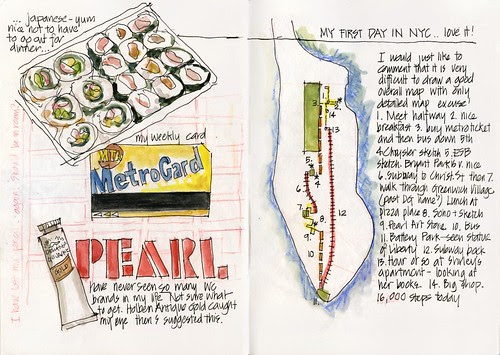 ... Japanese - yum
nice not to have
to go out for
dinner...
my weekly card
MTA
MetroCard
PEARL
have never seen so many WC
brands in my life. Not sure what
to get. Holbein Antique Gold caught
my eye then & suggested this.
MY FIRST DAY IN NYC .. love it!
I would just like to
comment that it is very
difficult to draw a good
overall map with only
detailed map excuse!
1. Meet halfway 2. nice
breakfast 3. buy metro ticket
and then bus down 5th
4 Chrysler sketch 5. ESB
sketch. Bryant Park is nice
6. Subway to Christ. St then 7.
walk through Greenwich Village
(past Dog name?) Lunch at
pizza place 8. Soho + sketch
9. Pearl Art Store 10. Bus
11. Battery Park - seen statue
of Liberty 12. Subway back
13. Hour or so at Shirley's
apartment - looking at
her books. 14. Big Shop.
16,000 steps today
1
2
3.
14
13
5.
4
6.
7
8
9
10
11
12